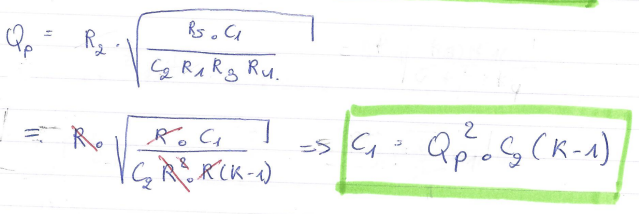 Qp = R2 . √(R5 . C1 / C2 R1 R3 R4.)
= R . √(R . C1 / C2 R² . R (K-1)) => C1 = Qp² . C2 (K-1)